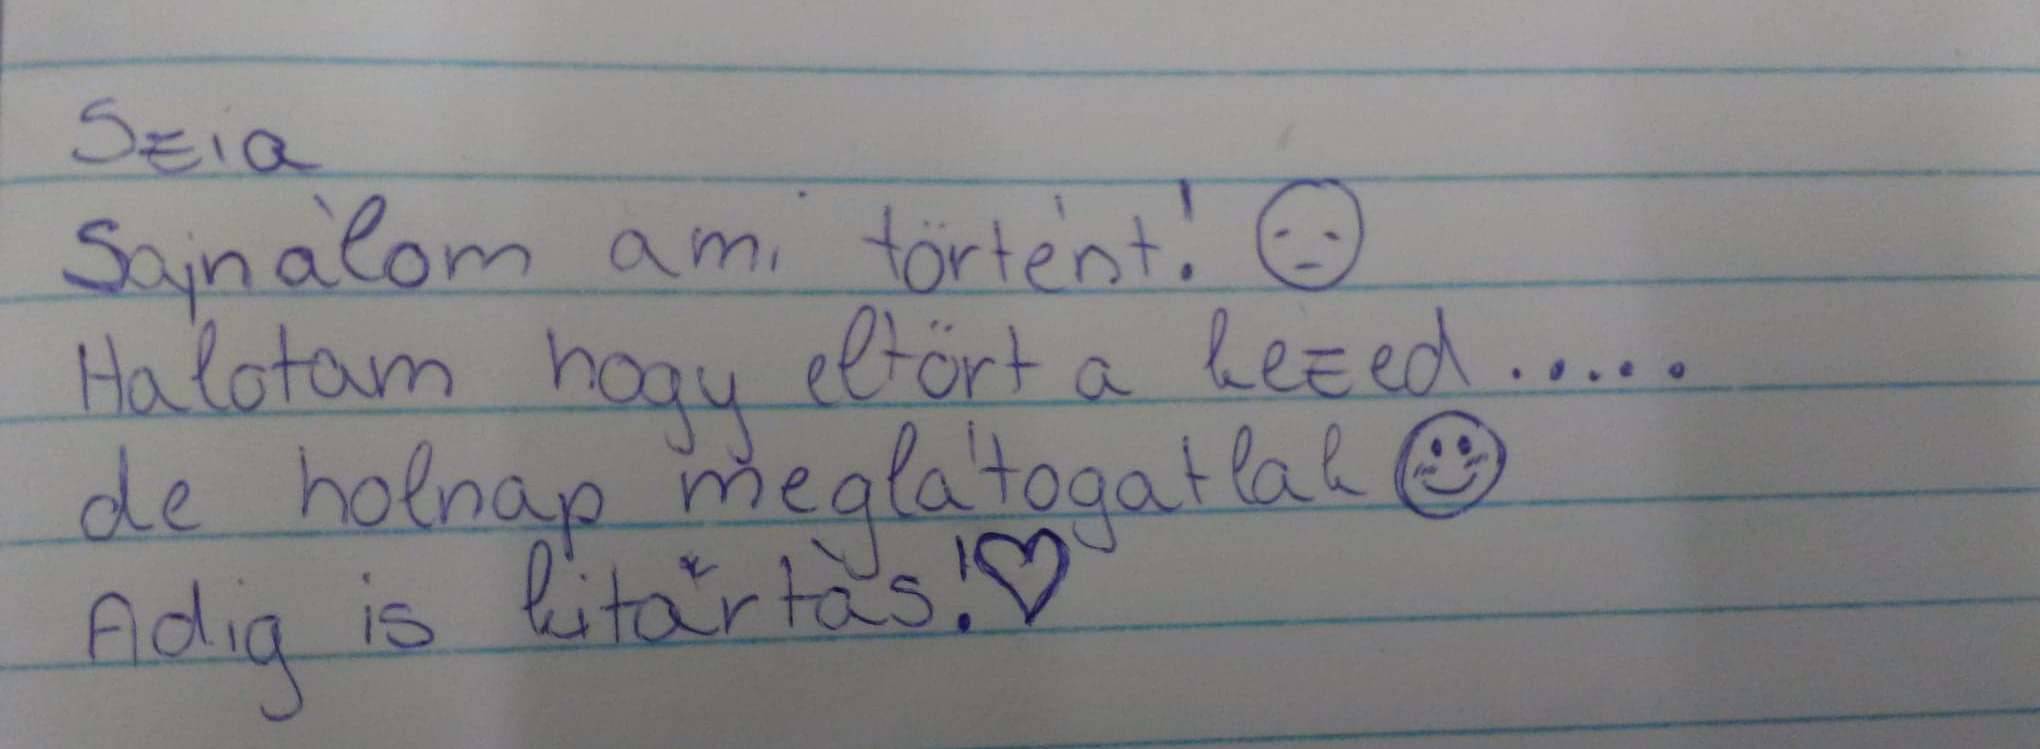 Szia
Sajnálom ami történt!
Halotam hogy eltört a kezed.....
de holnap meglátogatlak
Adig is kitartás!